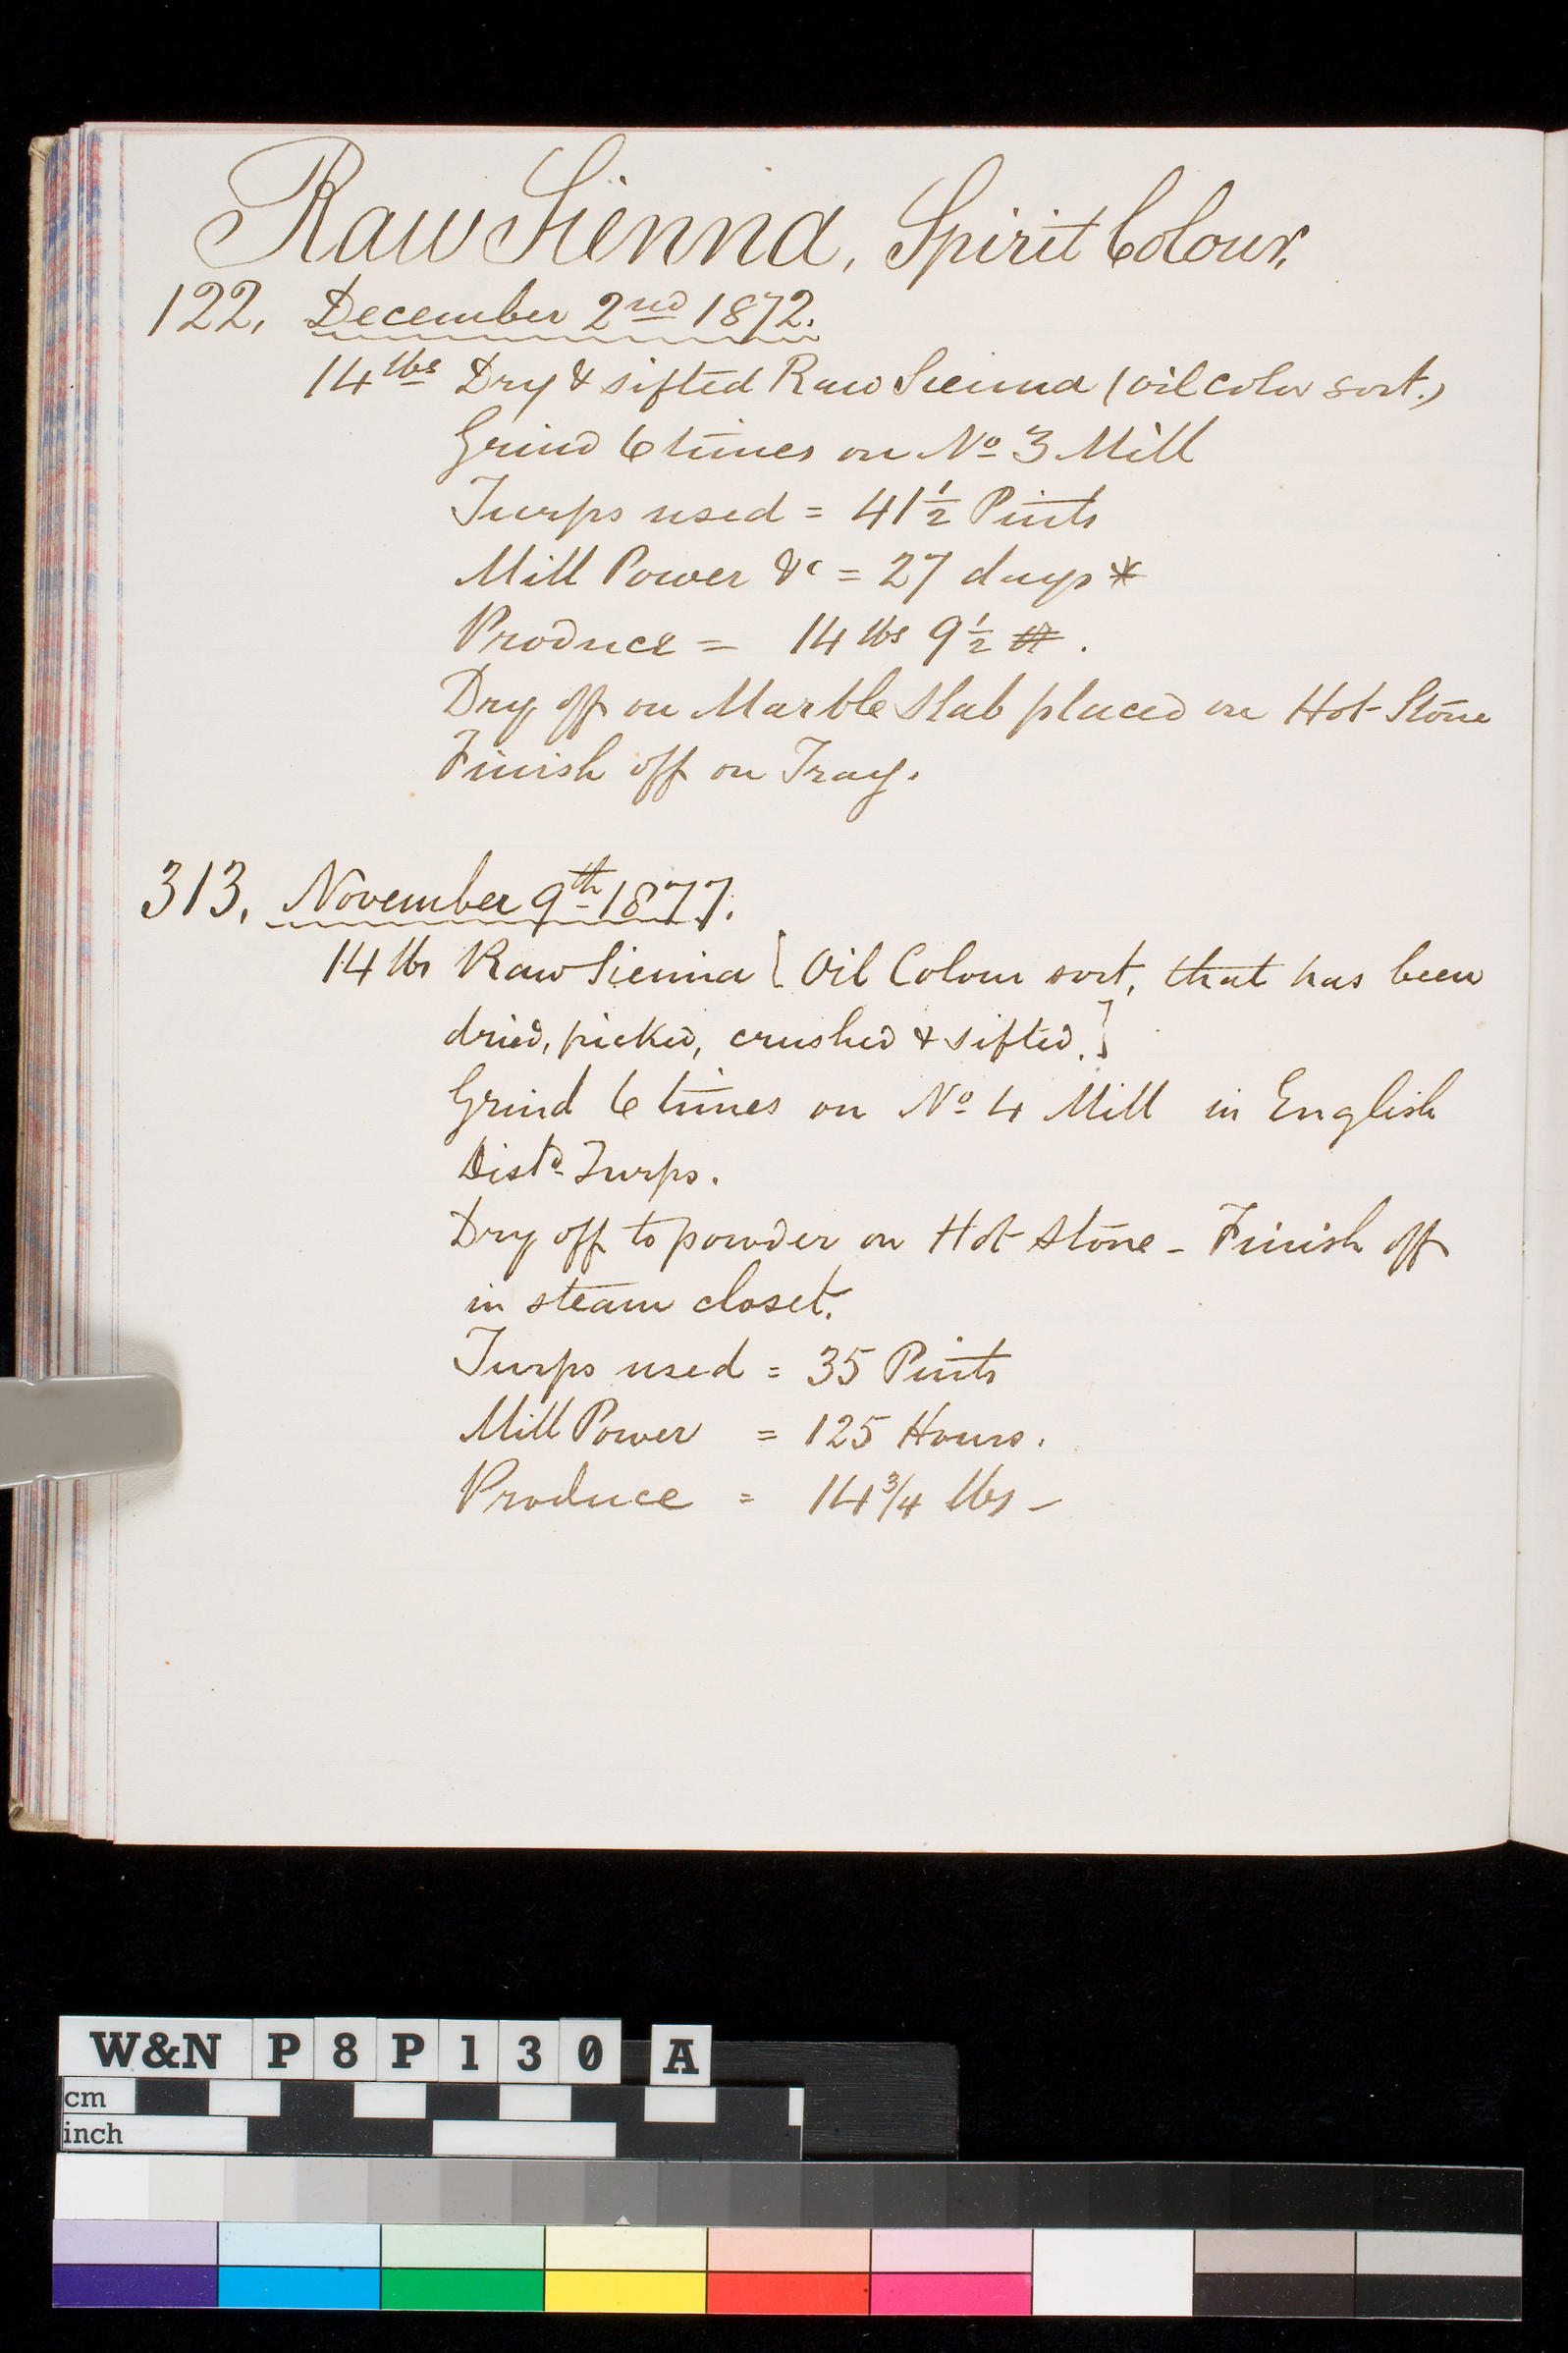 Raw Sienna, Spirit Colour.
122. December 2nd 1872.
14 lbs Dry & sifted Raw Sienna (oil color sort.)
Grind 6 times on No 3 Mill
Turps used = 41 1/2 Pints
Mill Power &c = 27 days *
Produce = 14 lbs 9 1/2 .
Dry off on Marble Slab placed on Hot Stone
Finish off on Tray.
313. November 9th 1877.
14 lbs Raw Sienna [Oil Colour sort, that has been
dried, picked, crushed & sifted.]
Grind 6 times on No 4 Mill in English
Distd Turps.
Dry off to powder on Hot Stone - Finish off
in steam closet.
Turps used = 35 Pints
Mill Power = 125 Hours.
Produce = 14 3/4 lbs -
W&N P8P130 A
cm
inch